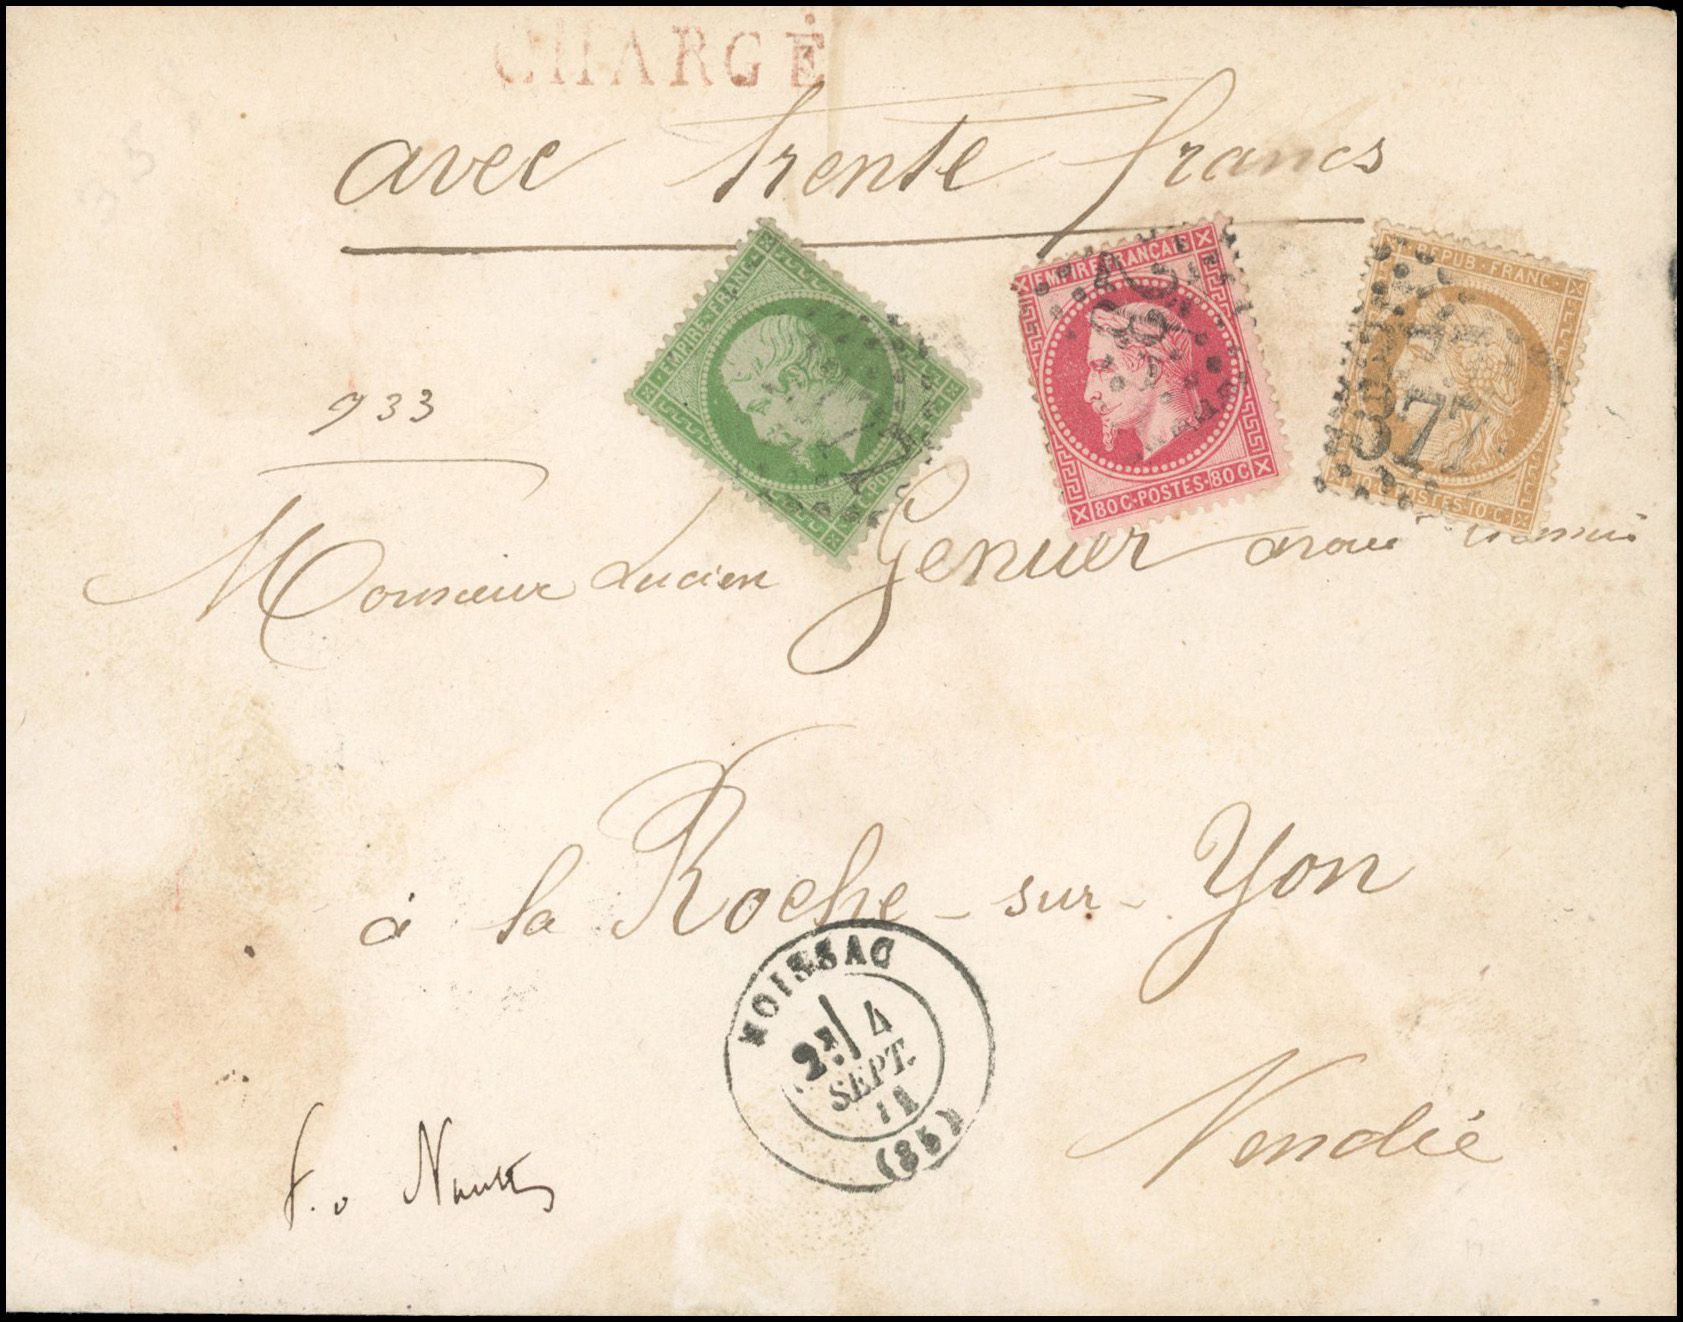 CHARGÉ
avec trente francs
EMPIRE FRANC
EMPIRE FRANÇAIS
80C·POSTES·80C
REPUB·FRANC·
2377
10·C·POSTES·10·C·
933
Monsieur Lucien Genuer
à la Roche-sur-Yon
MOISSAC
2E/ 4
SEPT.
71
Vendée